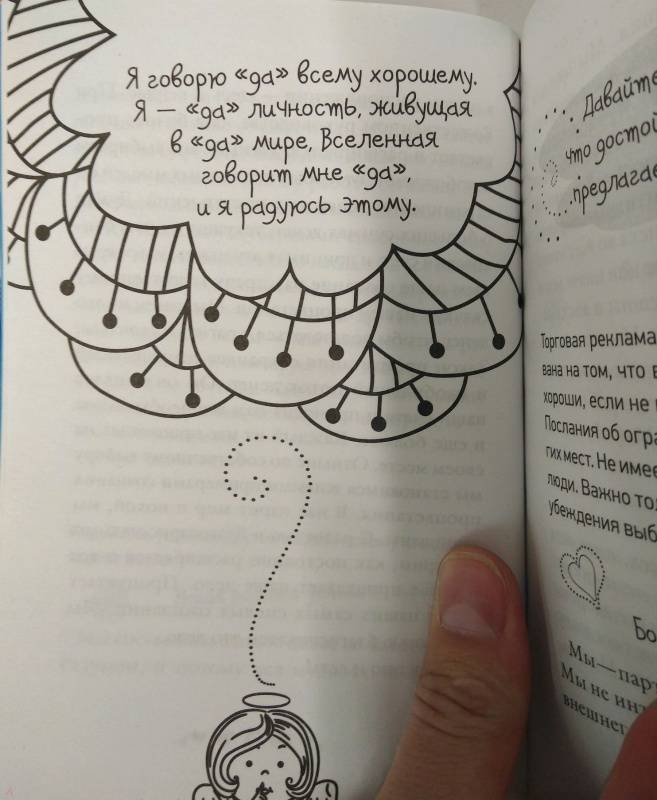 Я говорю «да» всему хорошему.
Я — «да» личность, живущая
в «да» мире, Вселенная
говорит мне «да»,
и я радуюсь этому.
Давайте
что достой
предлагае
Торговая реклама
вана на том, что в
хороши, если не
Послания об огра
гих мест. Не имее
люди. Важно тол
убеждения выб
Бо
Мы—пар
Мы не инт
внешнег